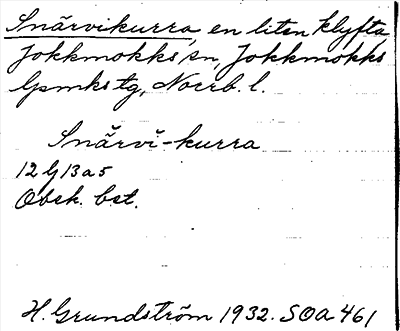 Snårvikurra, en liten klyfta
Jokkmokks sn, Jokkmokks
lpmks tg, Norrb. l.
Snårvi-kurra
12 G 13 a 5
Obek. bet.
H. Grundström 1932. SOA 461